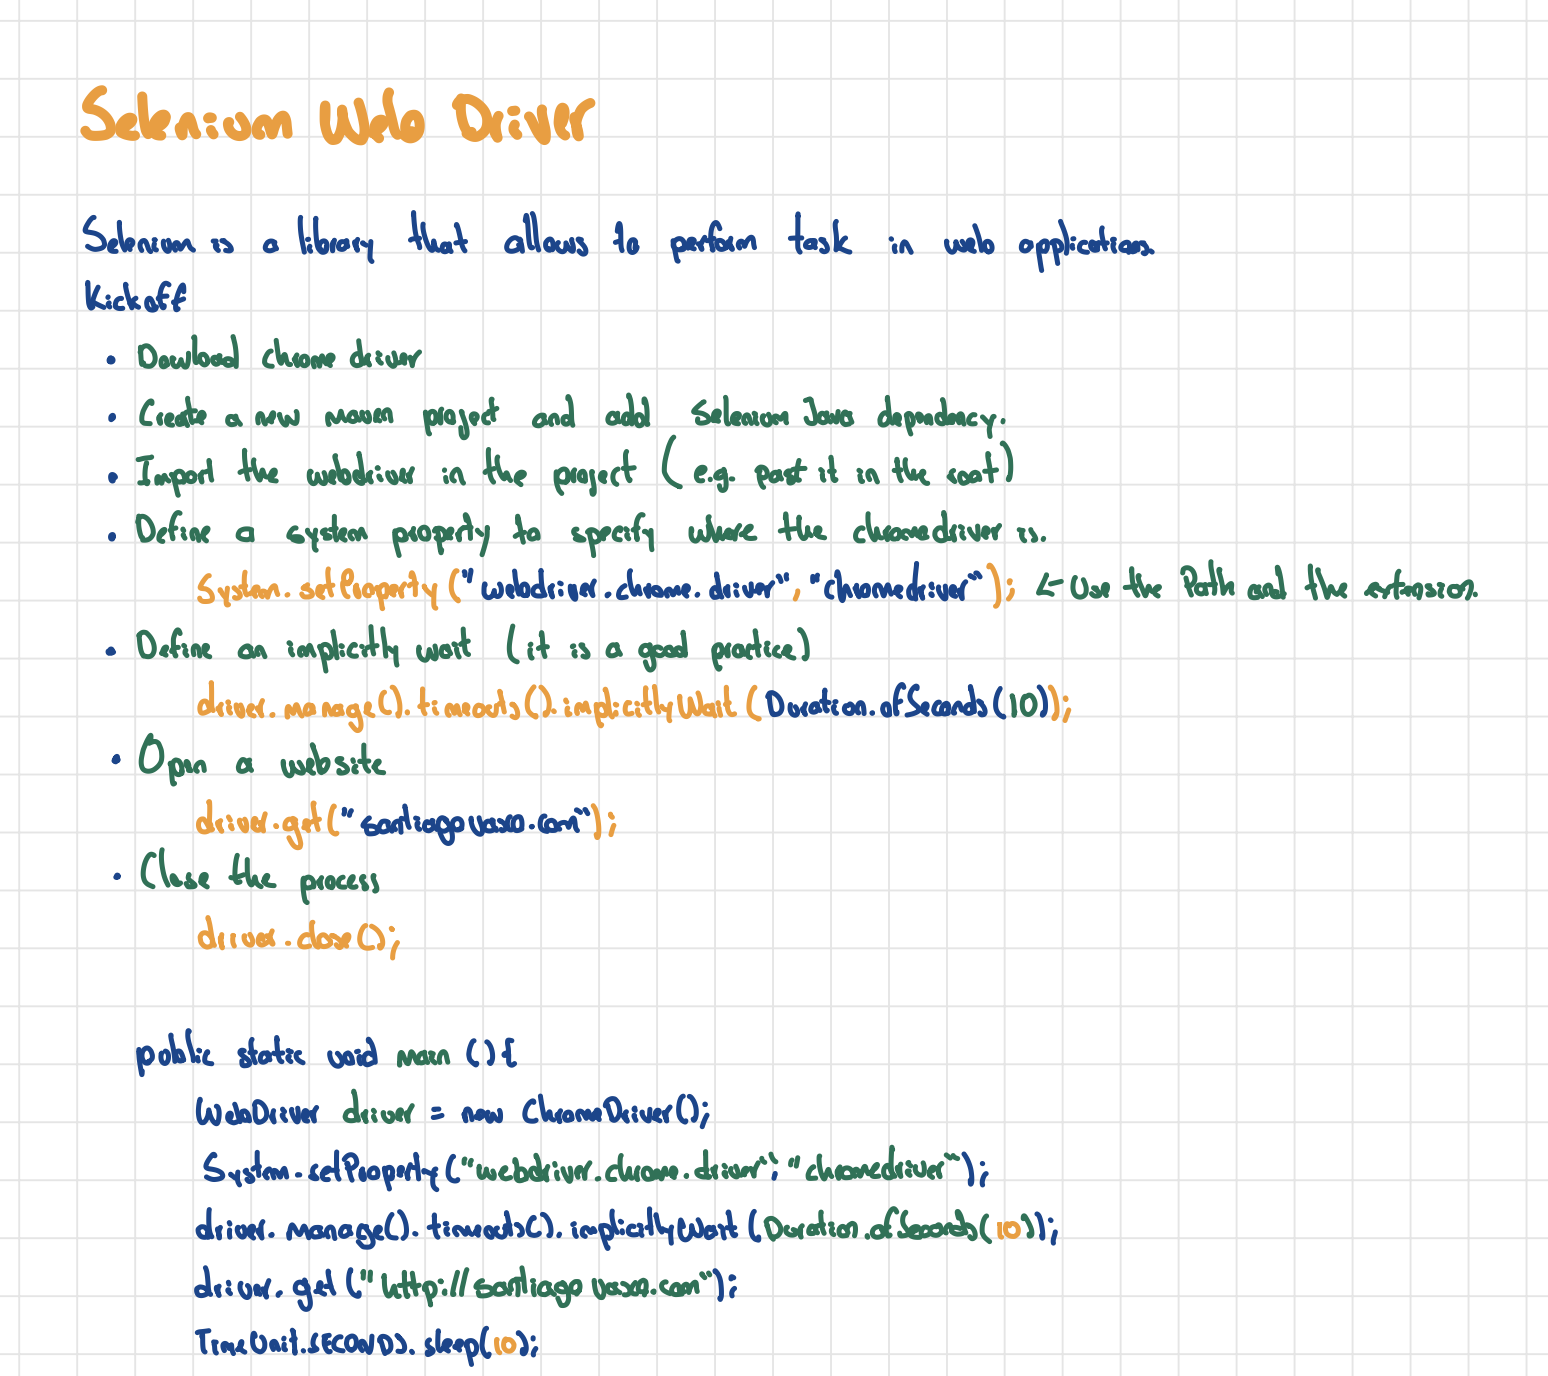 Selenium Web Driver
Selenium is a library that allows to perform task in web applications.
Kickoff
• Dowload chrome driver
• Create a new maven project and add Selenium Java dependency.
• Import the webdriver in the project (e.g. past it in the root)
• Define a system property to specify where the chromedriver is.
System.setProperty("webdriver.chrome.driver", "chromedriver"); <- Use the Path and the extension.
• Define an implicitly wait (it is a good practice)
driver.manage().timeouts().implicitlyWait(Duration.ofSeconds(10));
• Open a website
driver.get("santiagovaxo.com");
• Close the process
driver.close();
public static void main (){
WebDriver driver = new ChromeDriver();
System.setProperty("webdriver.chrome.driver", "chromedriver");
driver.manage().timeouts().implicitlyWait(Duration.ofSeconds(10));
driver.get("http://santiagovaxo.com");
TimeUnit.SECONDS.sleep(10);